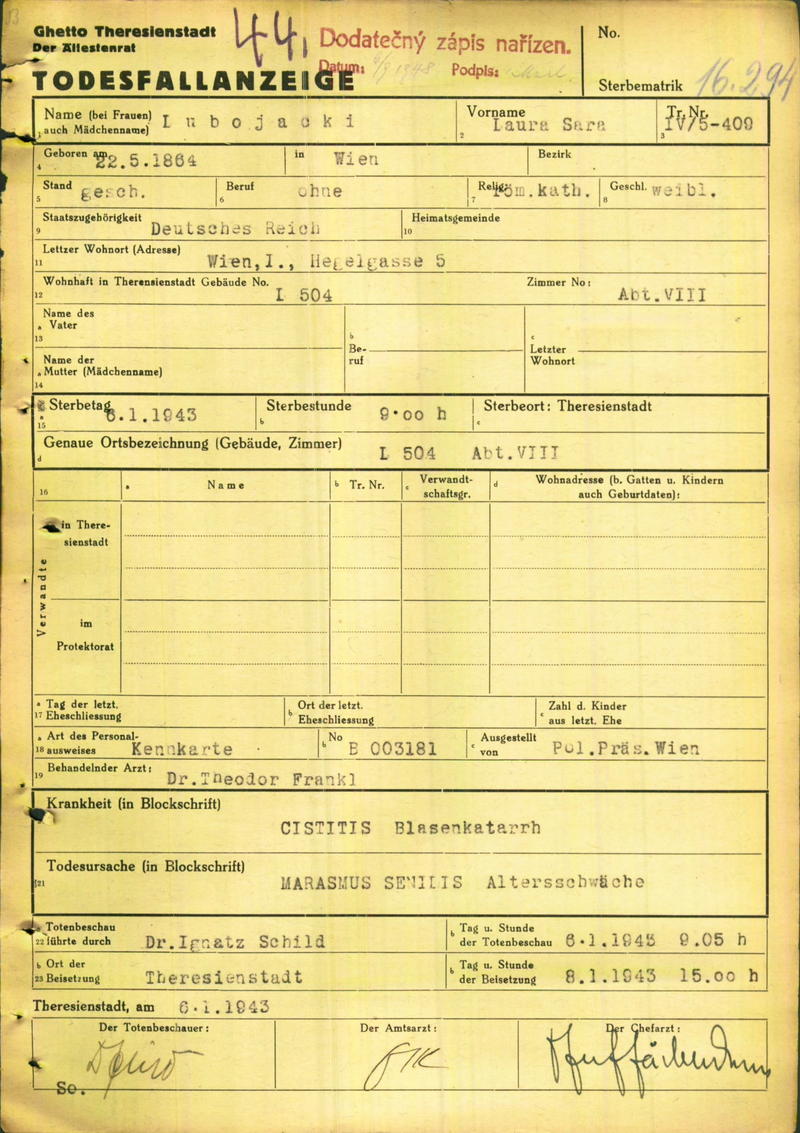 Ghetto Theresienstadt
Der Ältestenrat
44,
Dodatečný zápis nařízen.
Datum: Podpis:
No.
TODESFALLANZEIGE
Sterbematrik 16.294
Name (bei Frauen) auch Mädchenname) Lubojacki
Vorname 2 Laura Sara
Tr. Nr. 3 IV/5-409
4 Geboren am 22.5.1864 in Wien Bezirk
5 Stand gesch. 6 Beruf ohne 7 Relig. Röm.kath. 8 Geschl. weibl.
9 Staatszugehörigkeit Deutsches Reich 10 Heimatsgemeinde
11 Lettzer Wohnort (Adresse) Wien,I., Hegelgasse 5
12 Wohnhaft in Theresienstadt Gebäude No. L 504 Zimmer No: Abt.VIII
13 Name des a Vater
14 Name der a Mutter (Mädchenname)
b Beruf
c Letzter Wohnort
15 Sterbetag 6.1.1943 b Sterbestunde 9.00 h c Sterbeort: Theresienstadt
d Genaue Ortsbezeichnung (Gebäude, Zimmer) L 504 Abt.VIII
16 a Name b Tr. Nr. c Verwandtschaftsgr. d Wohnadresse (b. Gatten u. Kindern auch Geburtdaten):
Verwandte
in Theresienstadt
im Protektorat
17 a Tag der letzt. Eheschliessung b Ort der letzt. Eheschliessung c Zahl d. Kinder aus letzt. Ehe
18 a Art des Personalausweises Kennkarte b No E 003181 c Ausgestellt von Pol.Präs.Wien
19 Behandelnder Arzt: Dr.Theodor Frankl
Krankheit (in Blockschrift)
CISTITIS Blasenkatarrh
Todesursache (in Blockschrift)
21 MARASMUS SENILIS Altersschwäche
22 Totenbeschau führte durch Dr.Ignatz Schild b Tag u. Stunde der Totenbeschau 6.1.1943 9.05 h
23 b Ort der Beisetzung Theresienstadt b Tag u. Stunde der Beisetzung 8.1.1943 15.00 h
Theresienstadt, am 6.1.1943
Der Totenbeschauer: Der Amtsarzt: Der Chefarzt:
So.